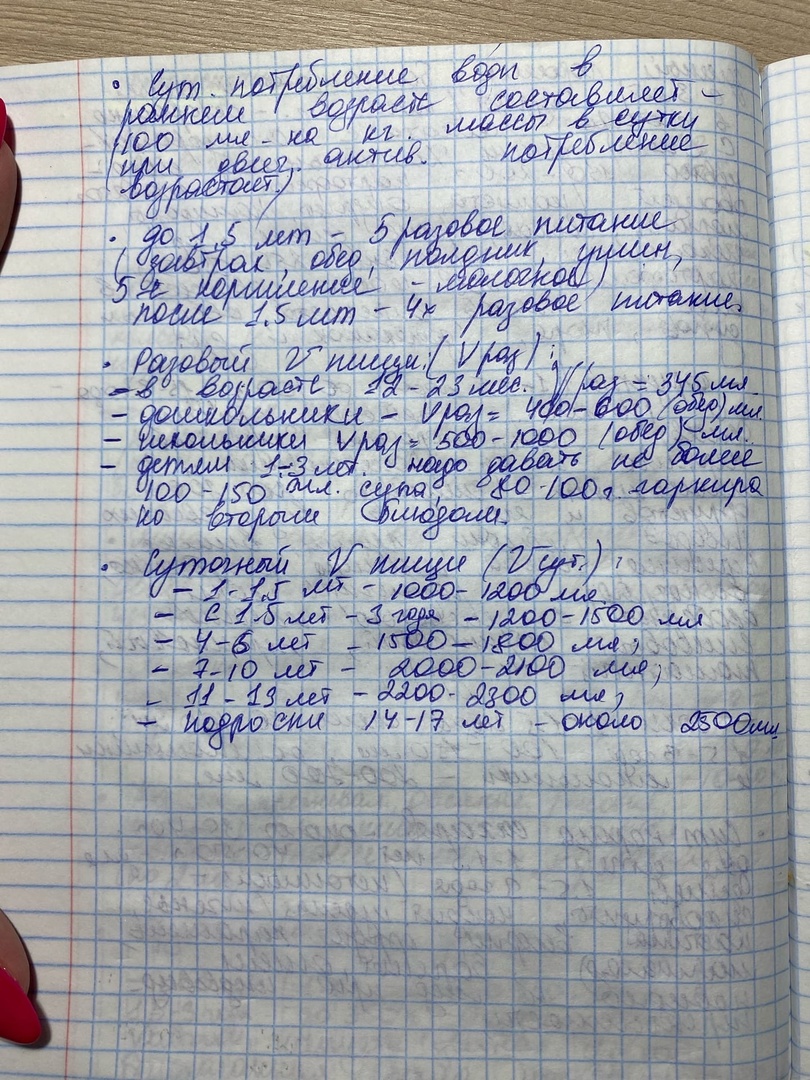 • Сут. потребление воды в
раннем возрасте составляет -
100 мл - на кг. массы в сутки
(при двиг. актив. потребление
возрастает.)
• до 1,5 лет - 5 разовое питание
(завтрак, обед, полдник, ужин,
5е кормление - молочное)
после 1.5 лет - 4х разовое питание.
• Разовый V пищи: (V раз):
- в возрасте 12 - 23 мес. V раз = 345 мл
- дошкольники - V раз = 400-600 (обед) мл.
- школьники V раз = 500-1000 (обед) мл.
- детям 1-3 лет. надо давать не более
100-150 мл. супа, 80-100г. гарнира
ко вторым блюдам.
• Суточный V пищи (V сут.):
- 1-1,5 лет - 1000-1200 мл
- с 1.5 лет - 3 года - 1200-1500 мл
- 4-6 лет - 1500-1800 мл;
- 7-10 лет - 2000-2100 мл;
- 11-13 лет - 2200-2300 мл;
- подростки 14-17 лет - около 2500мл